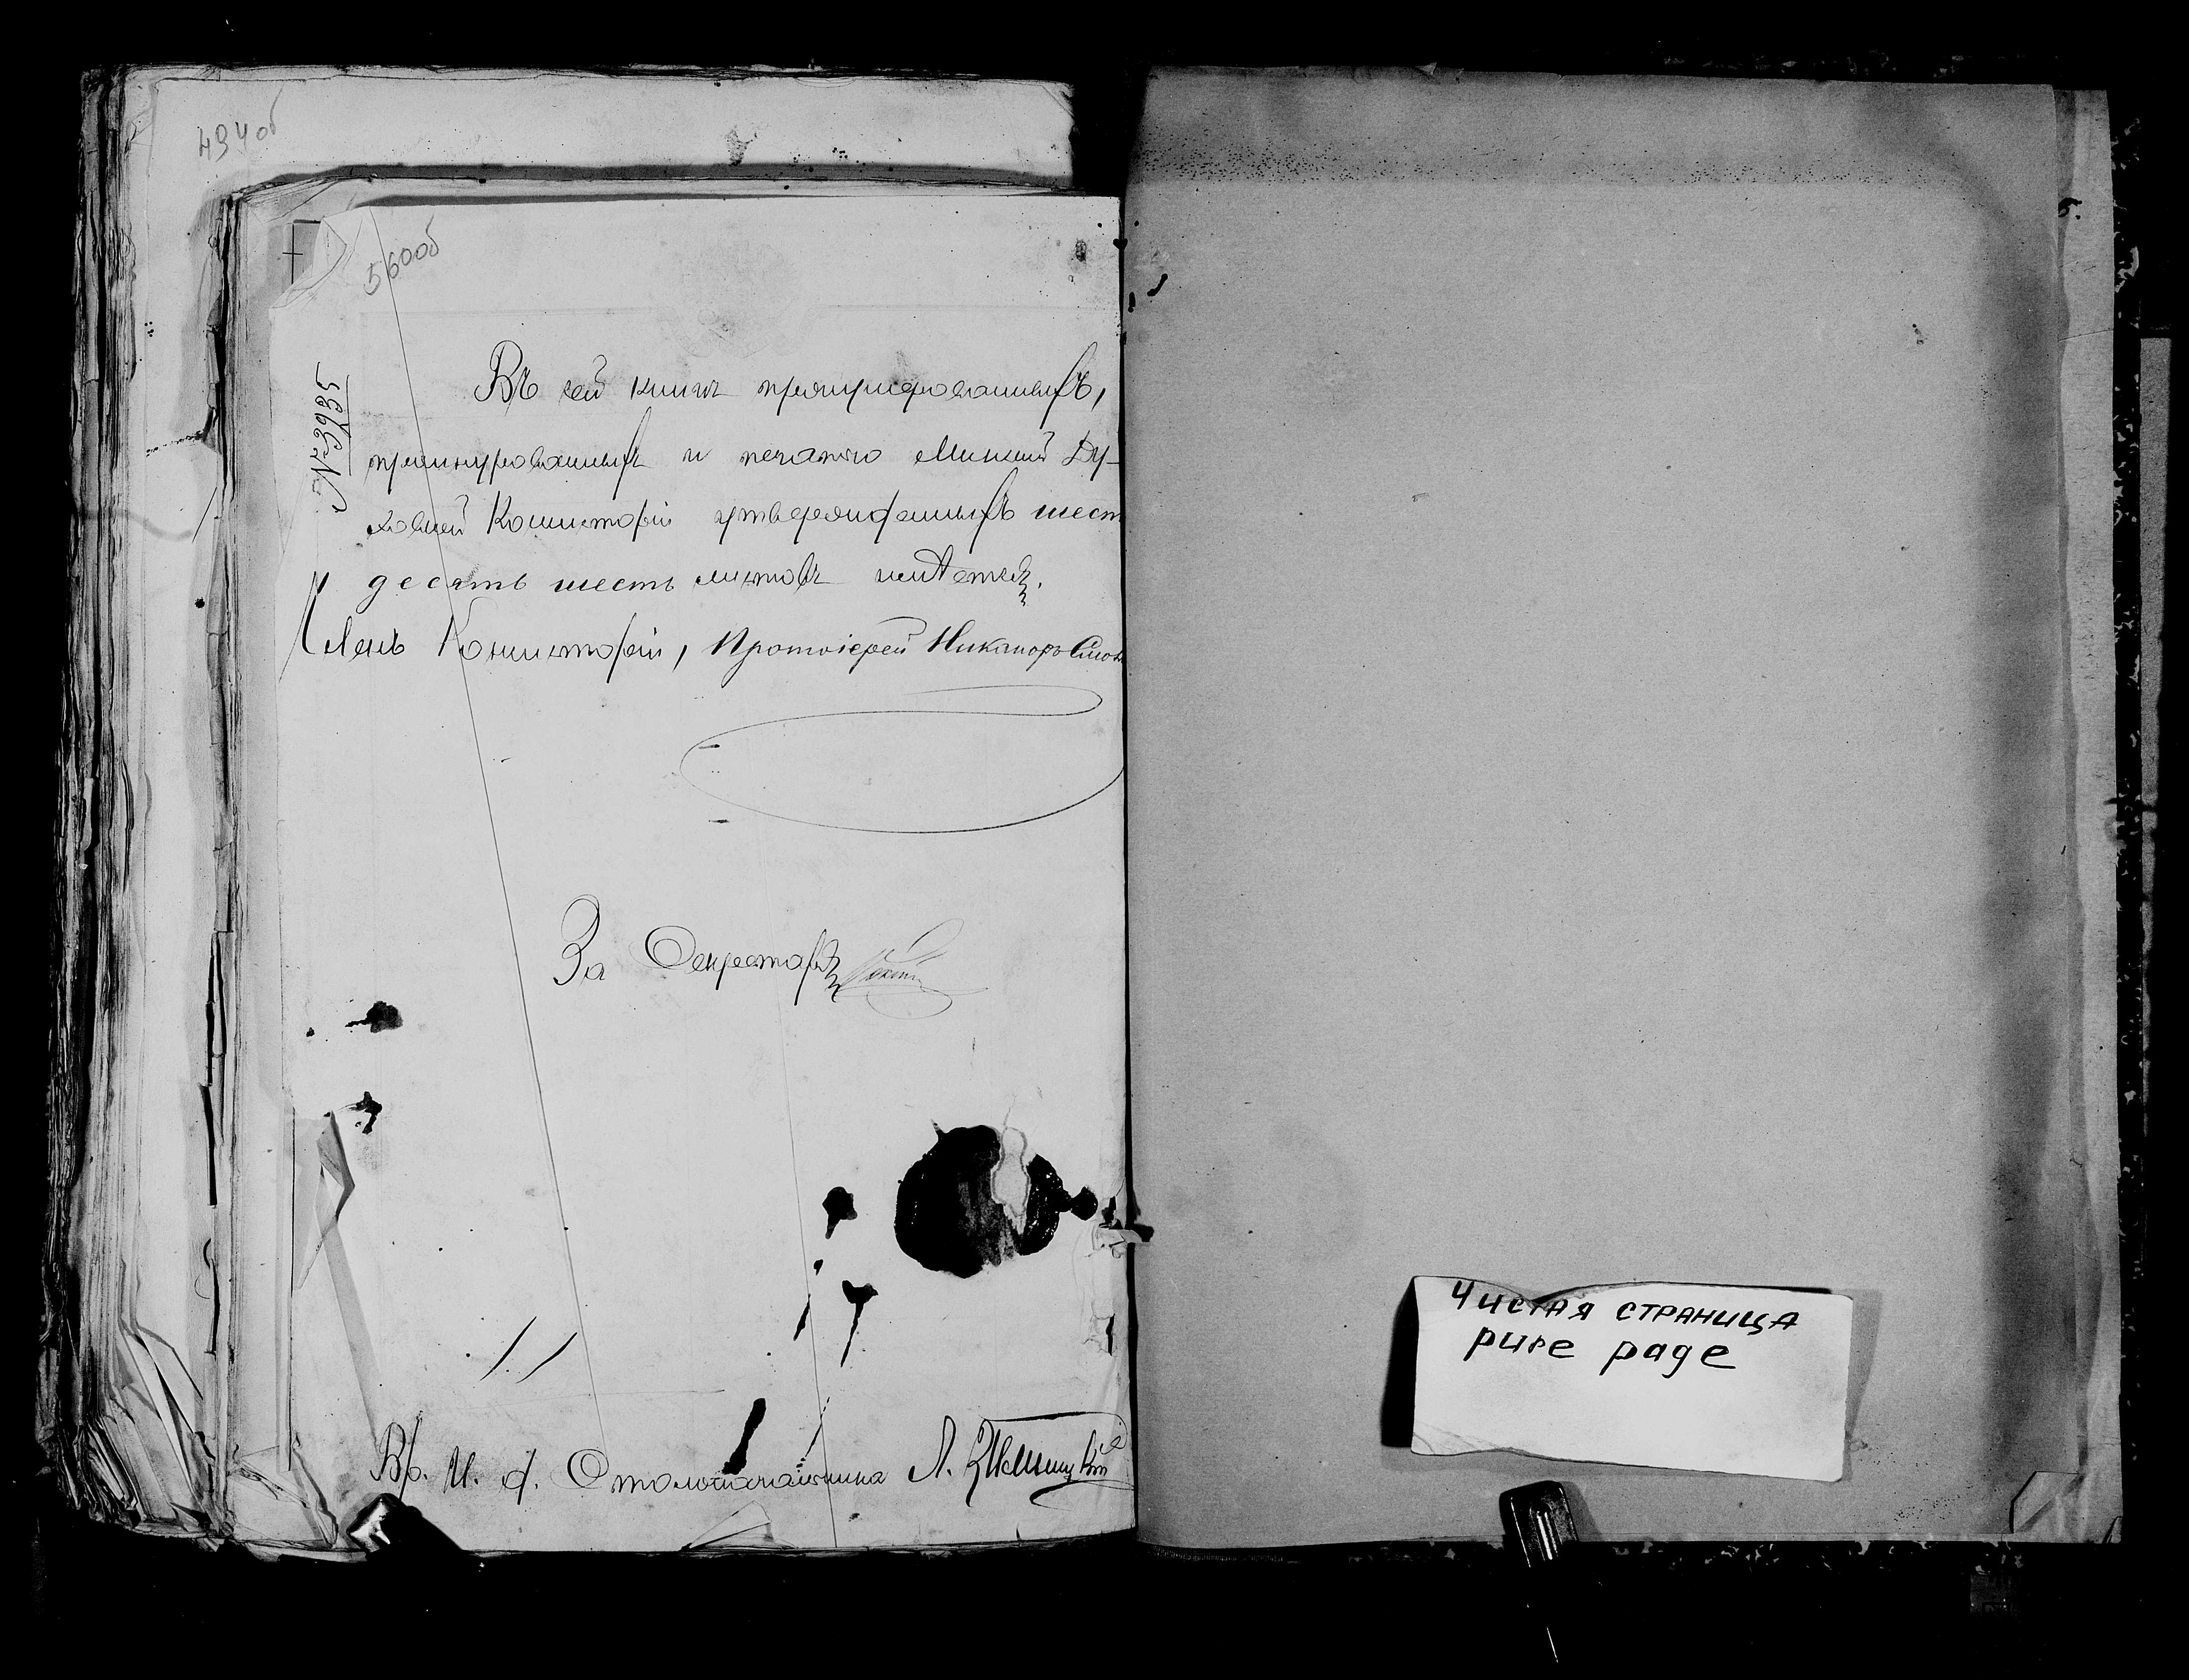 494об
560об
№ 3935
Въ сей книгѣ пронумерованныхъ,
прошнурованныхъ и печатью Минской Ду-
ховной Консисторіи утвержденныхъ шест
десятъ шесть листовъ
Членъ Консисторіи, Протоіерей Никаноръ Смол
За Секретаря
Вр. И. д. Столоначальника Л.
Чистая страница
pure page